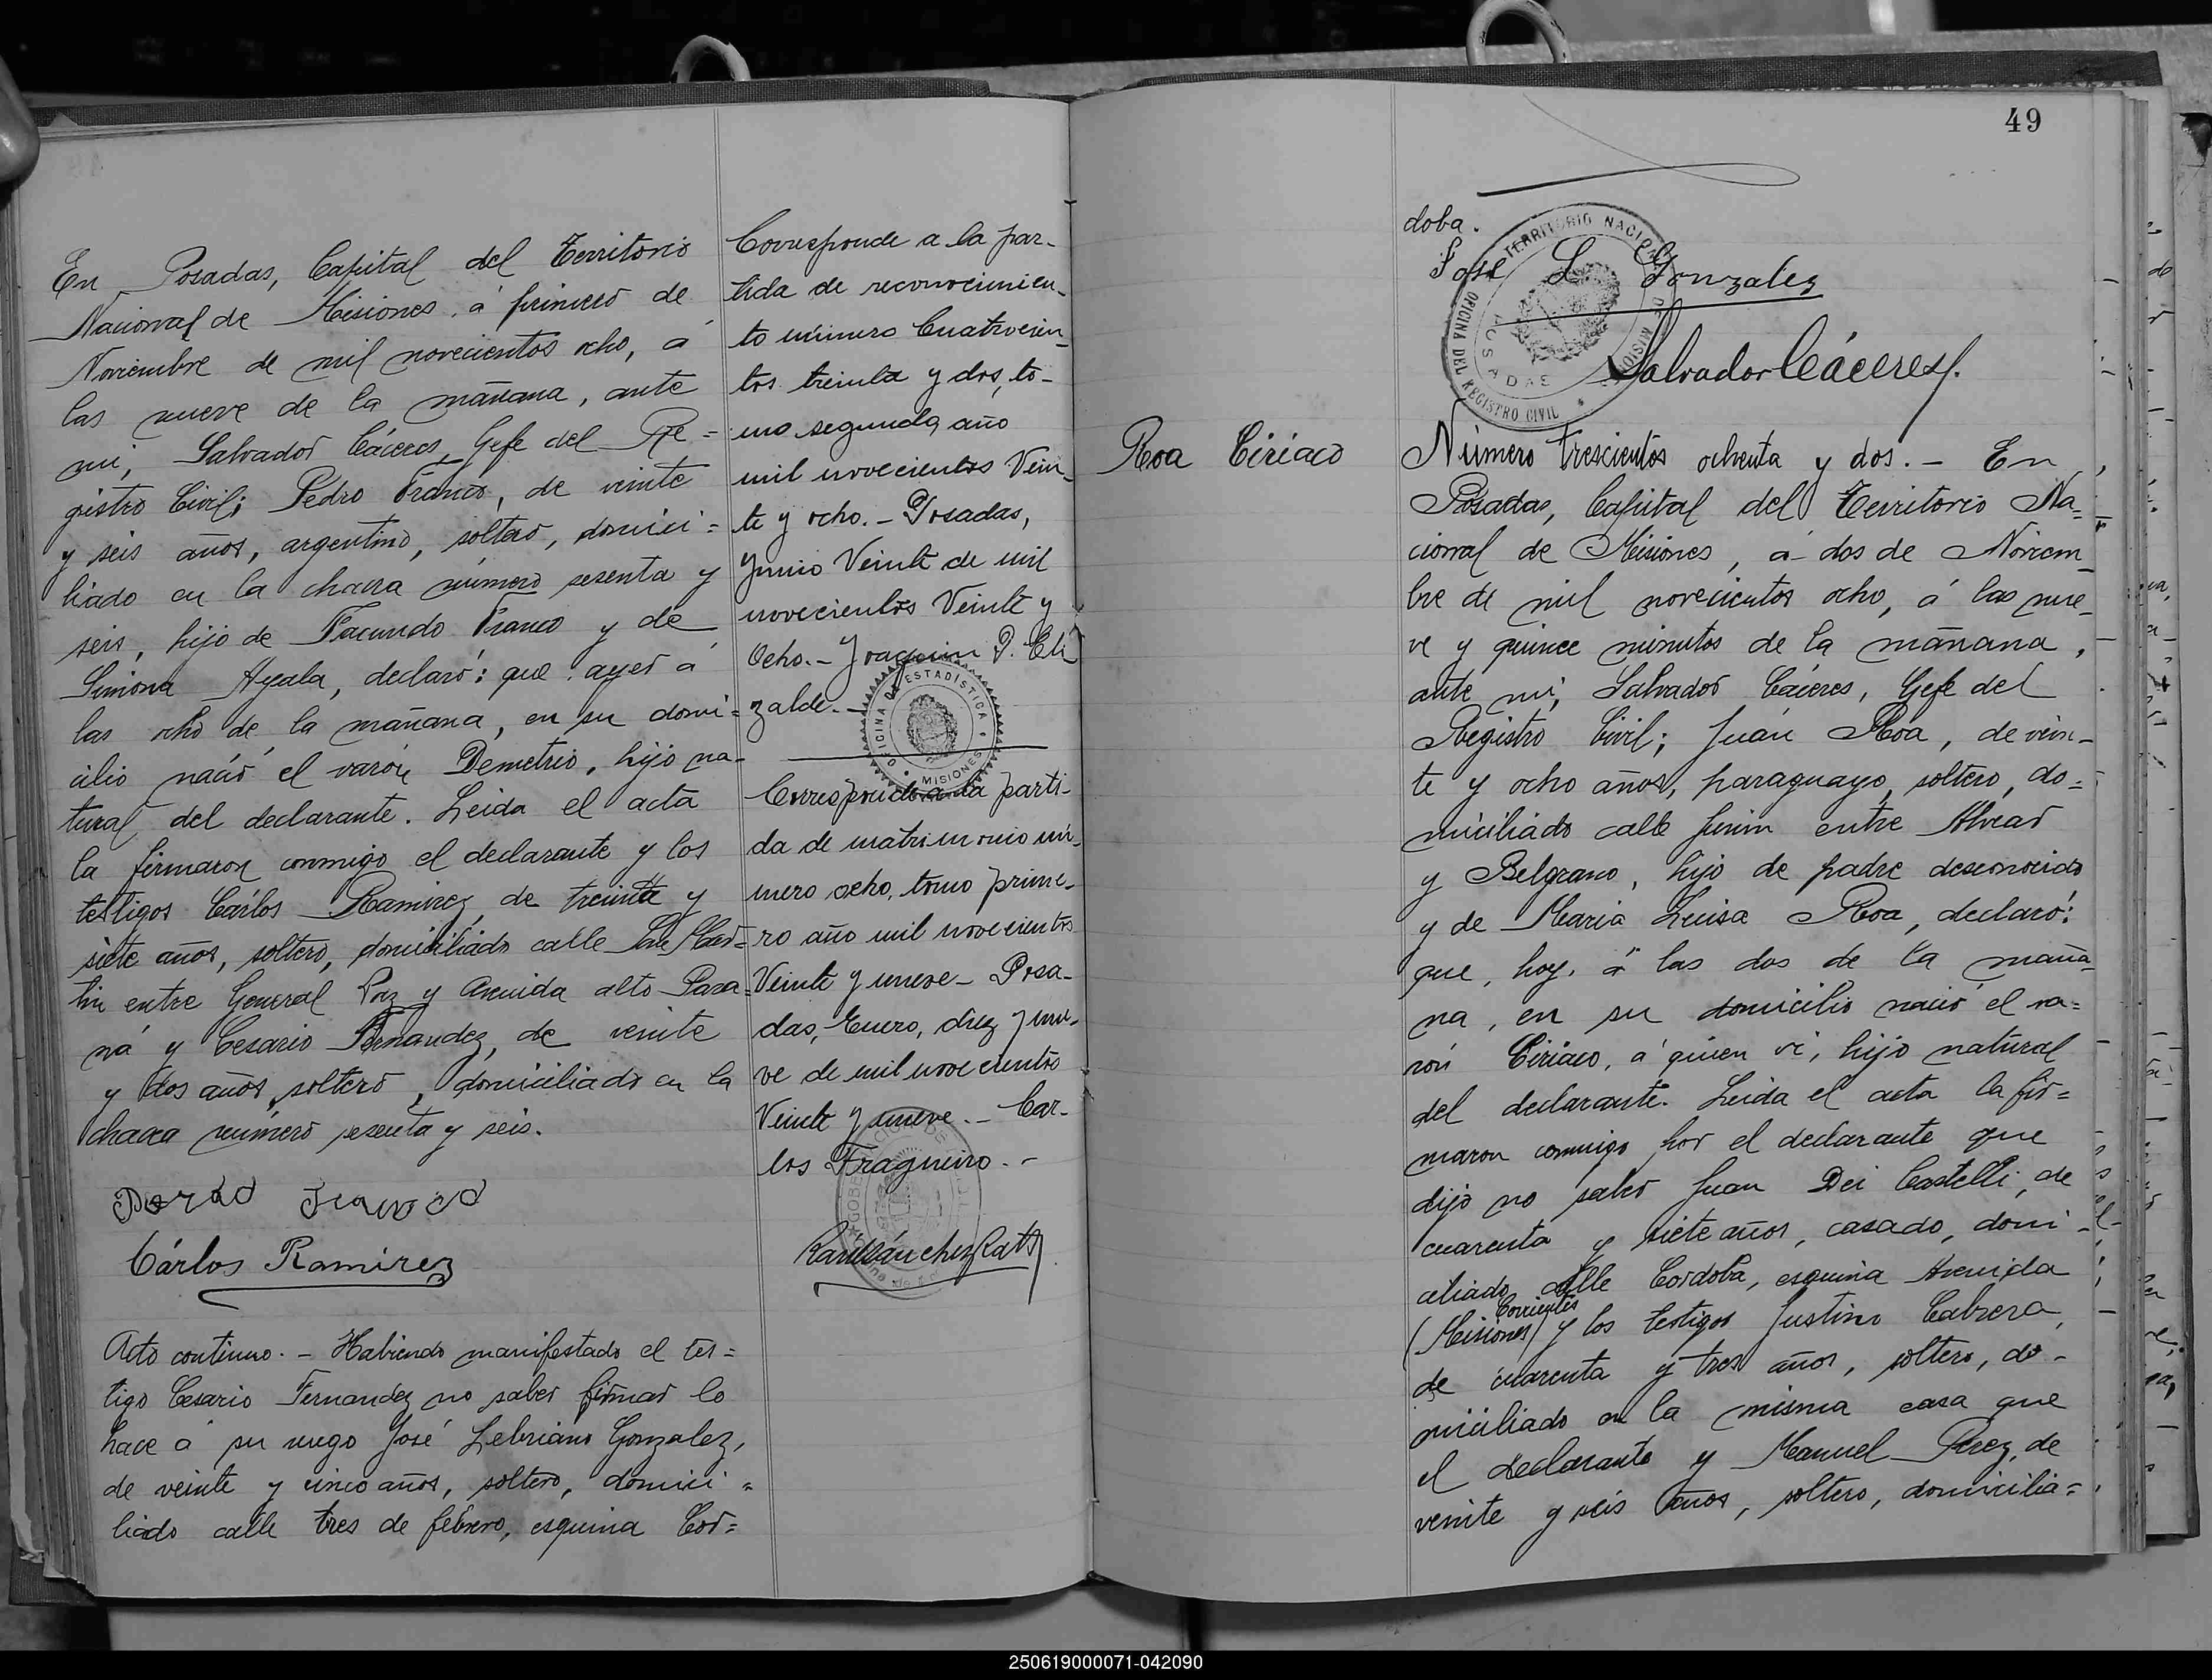 En Posadas, Capital del Territorio
Nacional de Misiones, á primero de
Noviembre de mil novecientos ocho, á
las nueve de la mañana, ante
mi, Salvador Cáceres, Gefe del Re=
gistro Civil; Pedro Franco, de veinte
y seis años, argentino, soltero, domici=
liado en la chacra número sesenta y
seis, hijo de Facundo Franco y de
Simona Ayala, declaró: que ayer á
las ocho de la mañana, en su domi=
cilio nació el varón Demetrio, hijo na-
tural del declarante. Leida el acta
la firmaron conmigo el declarante y los
testigos Cárlos Ramirez, de treinta y
siete años, soltero, domiciliado calle San Mar=
tin entre General Paz y Avenida alto Para=
ná y Cesario Fernandez, de veinte
y dos años, soltero, domiciliado en la
chacra número sesenta y seis.
Pedro Franco
Cárlos Ramirez
Acto continuo. - Habiendo manifestado el tes=
tigo Cesario Fernandez no saber firmar lo
hace á su ruego José Lebriano Gonzalez,
de veinte y cinco años, soltero, domici=
liado calle tres de febrero, esquina Cor=
Corresponde a la par-
tida de reconocimien-
to número Cuatrocien-
tos treinta y dos, to-
mo segundo, año
mil novecientos Vein-
te y ocho. - Posadas,
Junio Veinte de mil
novecientos Veinte y
Ocho. - Joaquin P. Eli
zalde. -
OFICINA DE ESTADISTICA
MISIONES
Corresponde a la parti-
da de matrimonio nú-
mero ocho, tomo prime-
ro año mil novecientos
Veinte y nueve - Posa-
das, Enero, diez y nue-
ve de mil novecientos
Veinte y nueve. - Car-
los Fragueiro. -
Raúl Sánchez Rats
49
doba.
José L Gonzalez
TERRITORIO NACIONAL DE MISIONES
OFICINA DEL REGISTRO CIVIL
POSADAS
Salvador Cáceres
Roa Ciriaco
Número trescientos ochenta y dos. - En
Posadas, Capital del Territorio Na=
cional de Misiones, á dos de Noviem
bre de mil novecientos ocho, á las nue-
ve y quince minutos de la mañana,
ante mi, Salvador Cáceres, Gefe del
Registro Civil; Juan Roa, de vein-
te y ocho años, paraguayo, soltero, do=
miciliado calle Junin entre Alvear
y Belgrano, hijo de padre desconocido
y de Maria Luisa Roa, declaró:
que, hoy, á las dos de la maña
na, en su domicilio nació el va=
rón Ciriaco, á quien vi, hijo natural
del declarante. Leida el acta la fir=
maron conmigo por el declarante que
dijo no saber Juan Dei Castelli, de
cuarenta y siete años, casado, domi-
ciliado calle Cordoba, esquina Avenida
Corrientes
(Misiones) y los testigos Justino Cabrera,
de cuarenta y tres años, soltero, do-
miciliado en la misma casa que
el declarante y Manuel Perez, de
veinte y seis años, soltero, domicilia=
250619000071-042090